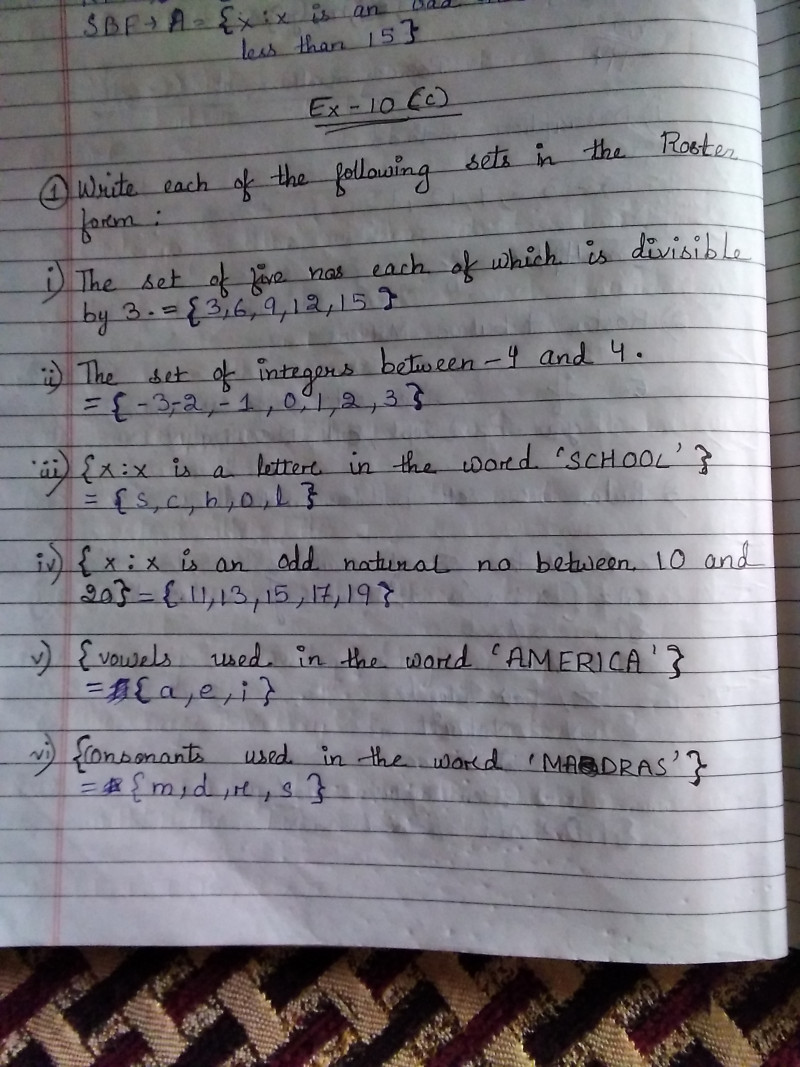 SBF → A = {x : x is an odd
less than 15}
Ex - 10 (c)
① Write each of the following sets in the Roster
form :
i) The set of five nos each of which is divisible
by 3. = {3,6,9,12,15}
ii) The set of integers between -4 and 4.
= {-3,-2, -1, 0, 1, 2, 3}
iii) {x : x is a letter in the word 'SCHOOL'}
= {s, c, h, o, l}
iv) {x : x is an odd natural no between 10 and
20} = {11,13,15,17,19}
v) {vowels used in the word 'AMERICA'}
= {a, e, i}
vi) {consonants used in the word 'MADRAS'}
= {m, d, r, s}